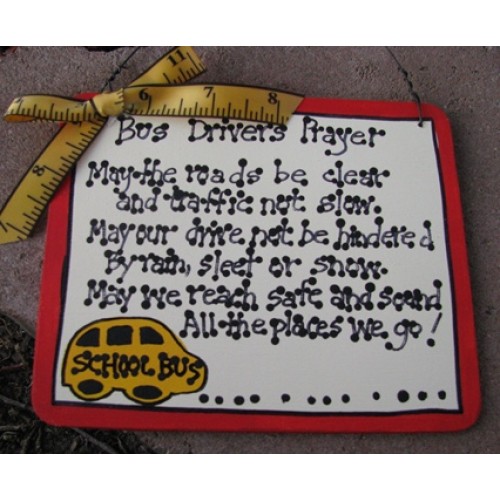 11
6
7
8
5
Bus Drivers Prayer
May the roads be clear
and traffic not slow.
May our drive not be hindered
By rain, sleet or snow.
May we reach safe and sound
All the places we go!
SCHOOL BUS